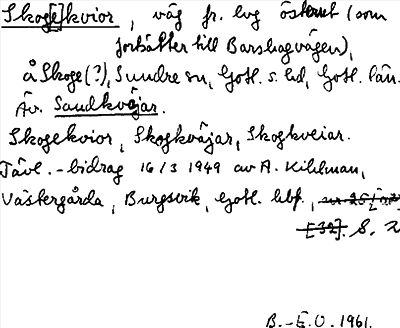 Skoge[e]kvior, väg fr. lvg österut (som
fortsätter till Barshagvägen),
å Skoge (?), Sundre sn, Gotl. s. hd, Gotl. län.
Äv. Sandkväjar.
Skogekvior, Skogkväjar, Skogkveiar.
Tävl.-bidrag 16/3 1949 av A. Kihlman,
Västergårda, Burgsvik, Gotl. hbf.,
[32]. S. 2
B.-E.O. 1961.